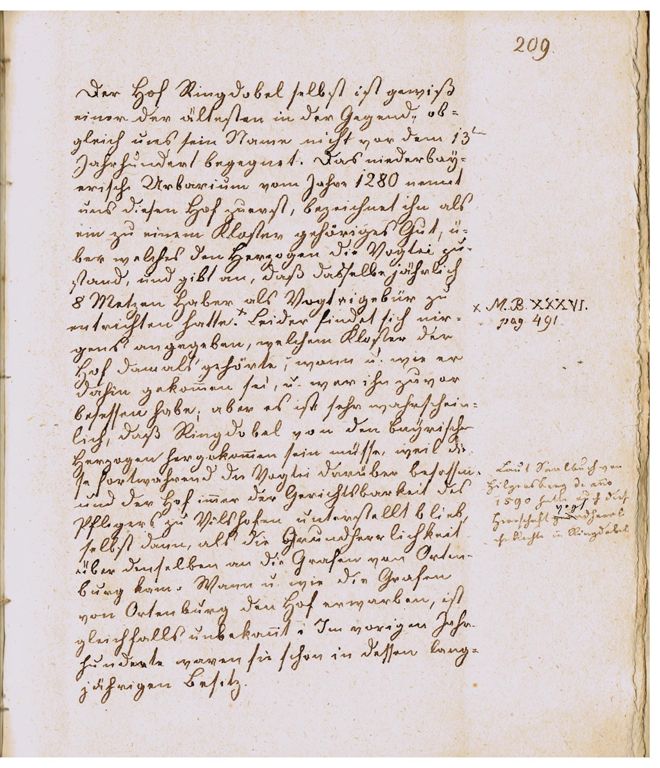 209.
Der Hof Ringdobel selbst ist gewiß
einer der ältesten in der Gegend, ob-
gleich uns sein Name nicht vor dem 13t
Jahrhundert begegnet. Das niederbay-
erische Urbarium vom Jahre 1280 nennt
uns diesen Hof zuerst, bezeichnet ihn als
ein zu einem Kloster gehöriges Gut, ü-
ber welches den Herzogen die Vogtei zu-
stand, und gibt an, daß dasselbe jährlich
8 Metzen Haber als Vogteigebür zu
entrichten hatte.x Leider findet sich nir-
gens angegeben, welchem Kloster der
Hof damals gehörte, wann u. wie er
dahin gekommen sei, u. wer ihn zuvor
besessen habe; aber es ist sehr wahrschein-
lich, daß Ringdobel von den bayrischen
Herzogen hergekommen sein müsse, weil die-
se fortwährend die Vogtei darüber besassen
und der Hof immer der Gerichtsbarkeit des
Pflegers zu Vilshofen unterstellt blieb,
selbst dann, als die Grundherrlichkeit
über denselben an die Grafen von Orten-
burg kam. Wann u. wie die Grafen
von Ortenburg den Hof erwarben, ist
gleichfalls unbekannt; Im vorigen Jahr-
hunderte waren sie schon in dessen lang-
jährigen Besitz.
x M. B. XXXVI.
pag. 491.
Laut Saalbuch von
Hilgersberg de anno
1590 hatte auch diese
Herrschaft
in Ringdobel